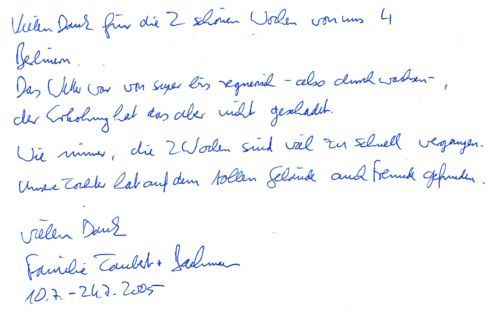 Vielen Dank für die 2 schönen Wochen von uns 4
Berlinern.
Das Wetter war von super bis regnerisch - also durchwachsen -,
der Erholung hat das aber nicht geschadet.
Wie immer, die 2 Wochen sind viel zu schnell vergangen.
Unsere Tochter hat auf dem tollen Gelände auch Freunde gefunden.
Vielen Dank
Familie
10.7. - 24.7.2005